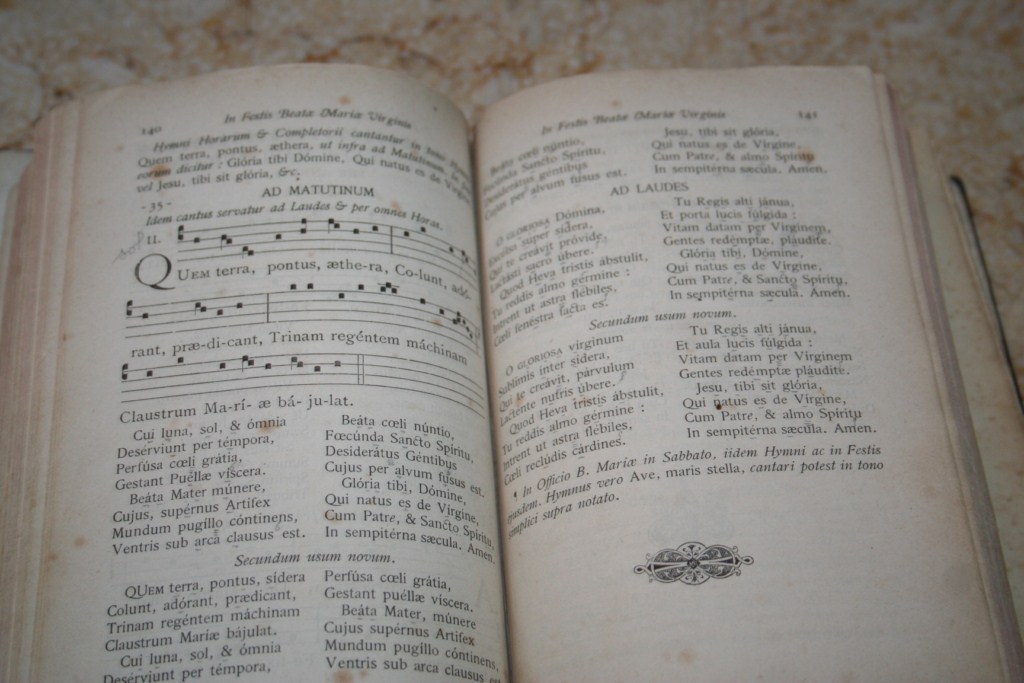 140
In Festis Beatæ Mariæ Virginis
Hymni Horarum & Completorii cantantur in tono
Quem terra, pontus, æthera, ut infra ad Matutinum.
eorum dicitur : Glória tibi Dómine, Qui natus es de
vel Jesu, tibi sit glória, &c.
AD MATUTINUM
- 35 -
Idem cantus servatur ad Laudes & per omnes Horas.
II.
QUEM terra, pontus, æthe-ra, Co-lunt, adó-
rant, præ-di-cant, Trinam regéntem máchinam
Claustrum Ma-rí- æ bá- ju-lat.
Cui luna, sol, & ómnia
Desérviunt per témpora,
Perfúsa cœli grátia,
Gestant Puéllæ víscera.
Beáta Mater múnere,
Cujus, supérnus Artifex
Mundum pugíllo cóntinens,
Ventris sub arca clausus est.
Beáta cœli núntio,
Fœcúnda Sancto Spíritu,
Desiderátus Géntibus
Cujus per alvum fusus est.
Glória tibi, Dómine,
Qui natus es de Vírgine,
Cum Patre, & Sancto Spíritu,
In sempitérna sæcula. Amen.
Secundum usum novum.
QUEM terra, pontus, sídera
Colunt, adórant, prædicant,
Trinam regéntem máchinam
Claustrum Mariæ bájulat.
Cui luna, sol, & ómnia
Desérviunt per témpora,
Perfúsa cœli grátia,
Gestant puéllæ víscera.
Beáta Mater, múnere
Cujus supérnus Artifex
Mundum pugíllo cóntinens,
Ventris sub arca clausus est
In Festis Beatæ Mariæ Virginis
141
Beáta cœli núntio,
Fecunda Sancto Spíritu,
Desiderátus géntibus
Cujus per alvum fusus est.
Jesu, tibi sit glória,
Qui natus es de Vírgine,
Cum Patre, & almo Spíritu
In sempitérna sæcula. Amen.
AD LAUDES
O GLORIOSA Dómina,
Excélsa super sídera,
Qui te creávit próvide,
Lactásti sacro úbere.
Quod Heva tristis ábstulit,
Tu reddis almo gérmine :
Intrent ut astra flébiles,
Cœli fenéstra facta es.
Tu Regis alti jánua,
Et porta lucis fúlgida :
Vitam datam per Vírginem,
Gentes redémptæ, pláudite.
Glória tibi, Dómine,
Qui natus es de Vírgine,
Cum Patre, & Sancto Spíritu,
In sempitérna sæcula. Amen.
Secundum usum novum.
O GLORIOSA virginum
Sublímis inter sídera,
Qui te creávit, párvulum
Lacténte nutris úbere.
Quod Heva tristis ábstulit,
Tu reddis almo gérmine :
Intrent ut astra flébiles,
Cœli reclúdis cárdines.
Tu Regis alti jánua,
Et aula lucis fúlgida :
Vitam datam per Vírginem
Gentes redémptæ pláudite.
Jesu, tibi sit glória,
Qui natus es de Vírgine,
Cum Patre, & almo Spíritu
In sempitérna sæcula. Amen.
¶ In Officio B. Mariæ in Sabbato, iidem Hymni ac in Festis
ejusdem. Hymnus vero Ave, maris stella, cantari potest in tono
simplici supra notato.